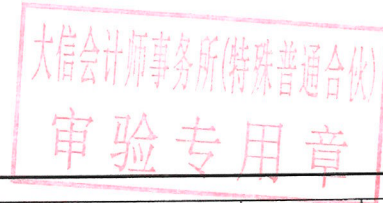 大信会计师事务所(特殊普通合伙)
审验专用章